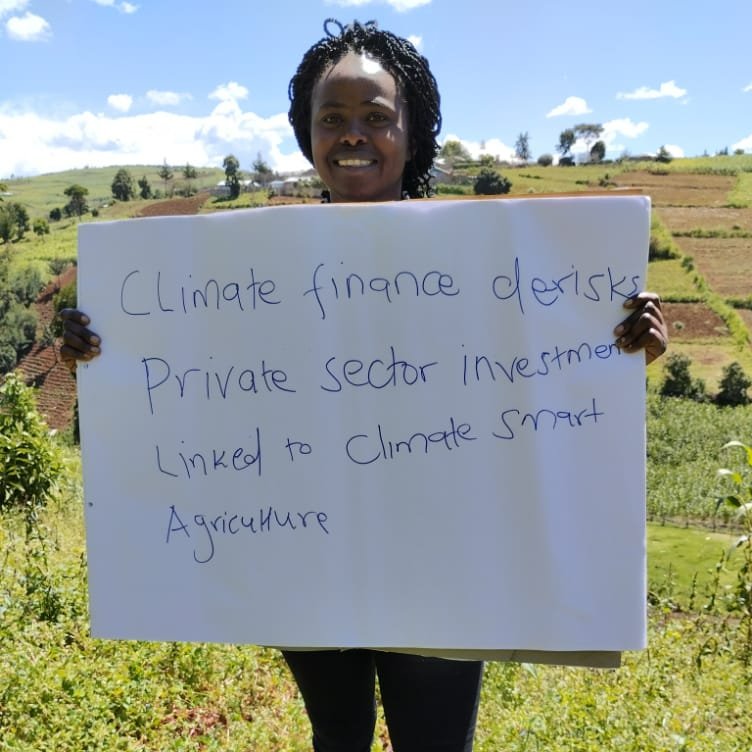 Climate finance derisks
Private sector investmen
Linked to Climate smart
Agriculture